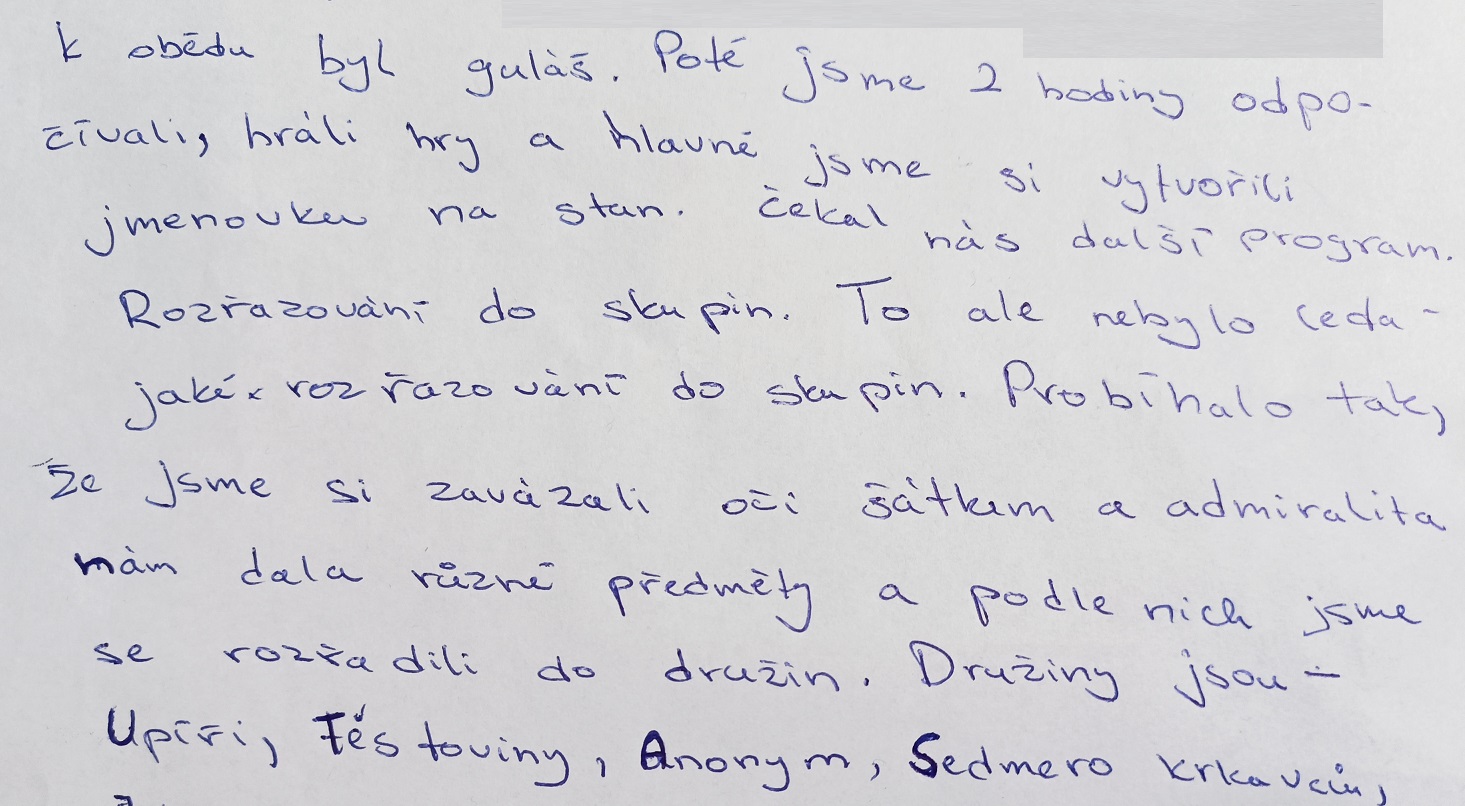 k obědu byl guláš. Poté jsme 2 hodiny odpo-
čívali, hráli hry a hlavně jsme si vytvořili
jmenovku na stan. Čekal nás další program.
Rozřazování do skupin. To ale nebylo leda-
jaké rozřazování do skupin. Probíhalo tak,
že jsme si zavázali oči šátkem a admiralita
nám dala různé předměty a podle nich jsme
se rozřadili do družin. Družiny jsou -
Upíři, Těstoviny, Anonym, Sedmero krkavců,